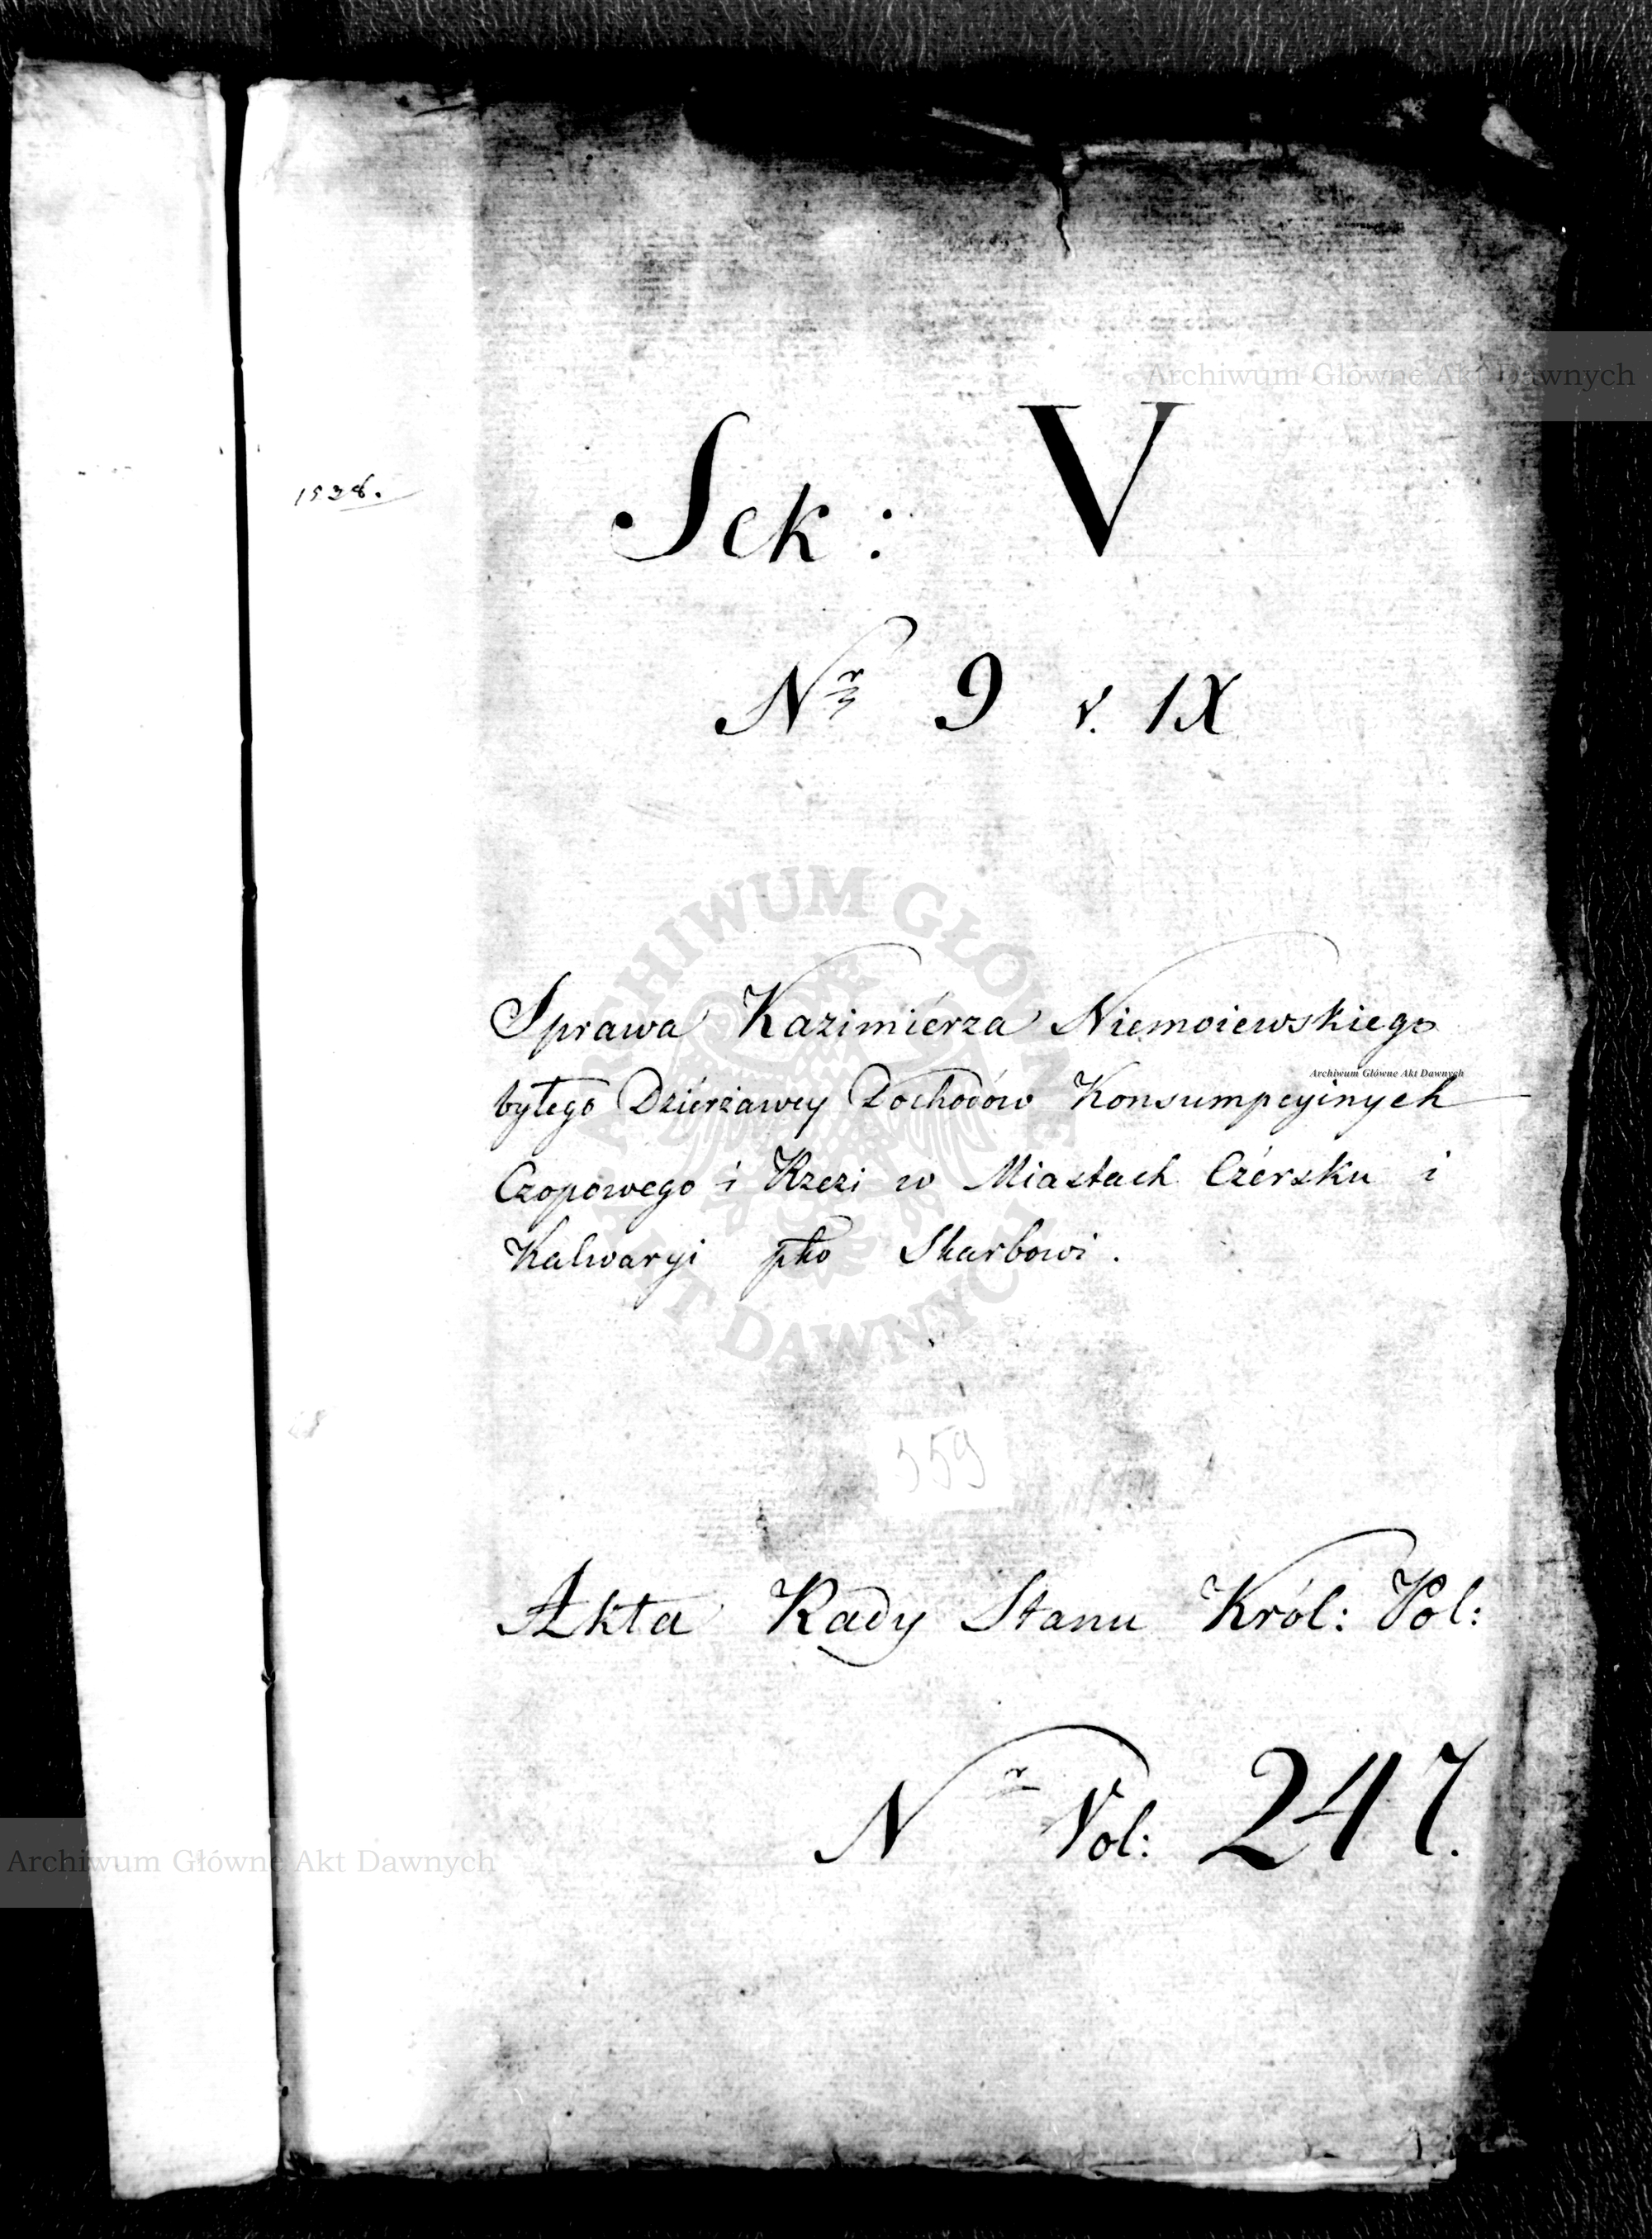 1528.
Sek: V
Nr 9 v. IX
Sprawa Kazimiérza Niemoiewskiego
byłego Dziérżawcy Dochodów Konsumpcyinych
Czopowego i Rzezi w Miastach Czérsku i
Kalwaryi pko Skarbowi.
359
Akta Rady Stanu Król: Pol:
Nr Vol: 247.
Archiwum Główne Akt Dawnych
Archiwum Główne Akt Dawnych
Archiwum Główne Akt Dawnych
ARCHIWUM GŁÓWNE AKT DAWNYCH